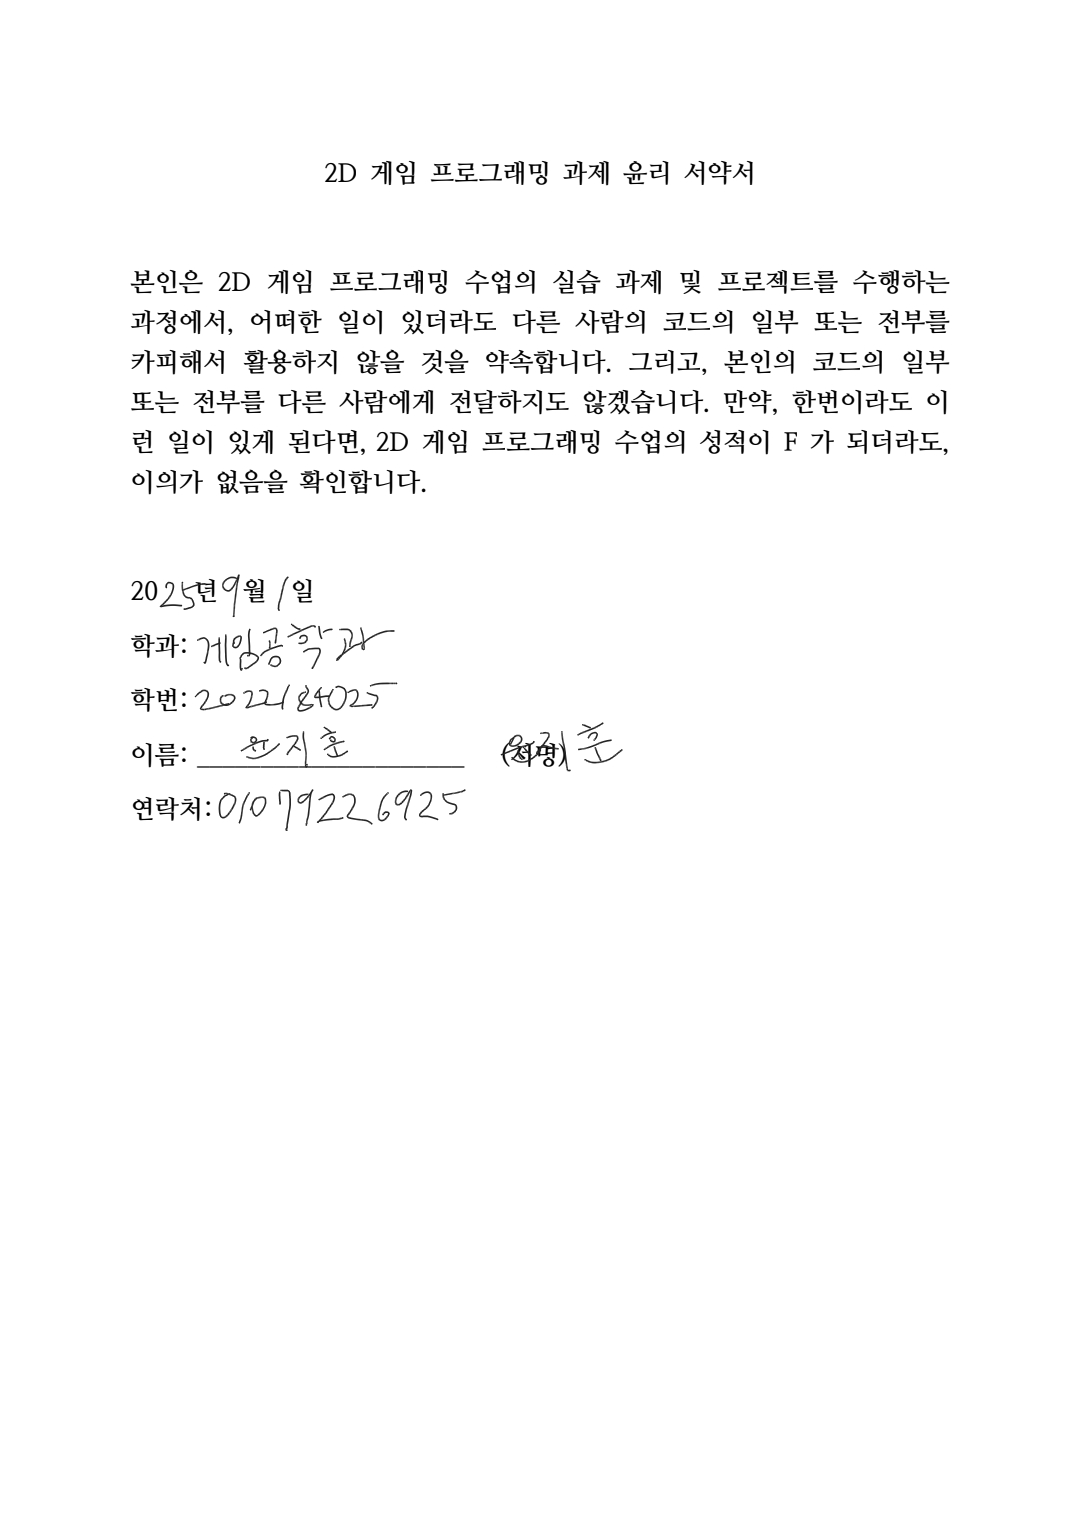 2D 게임 프로그래밍 과제 윤리 서약서
본인은 2D 게임 프로그래밍 수업의 실습 과제 및 프로젝트를 수행하는
과정에서, 어떠한 일이 있더라도 다른 사람의 코드의 일부 또는 전부를
카피해서 활용하지 않을 것을 약속합니다. 그리고, 본인의 코드의 일부
또는 전부를 다른 사람에게 전달하지도 않겠습니다. 만약, 한번이라도 이
런 일이 있게 된다면, 2D 게임 프로그래밍 수업의 성적이 F 가 되더라도,
이의가 없음을 확인합니다.
2025년 9월 1일
학과: 게임공학과
학번: 2022184025
이름: 윤지훈 (서명) 윤지훈
연락처: 01079226925